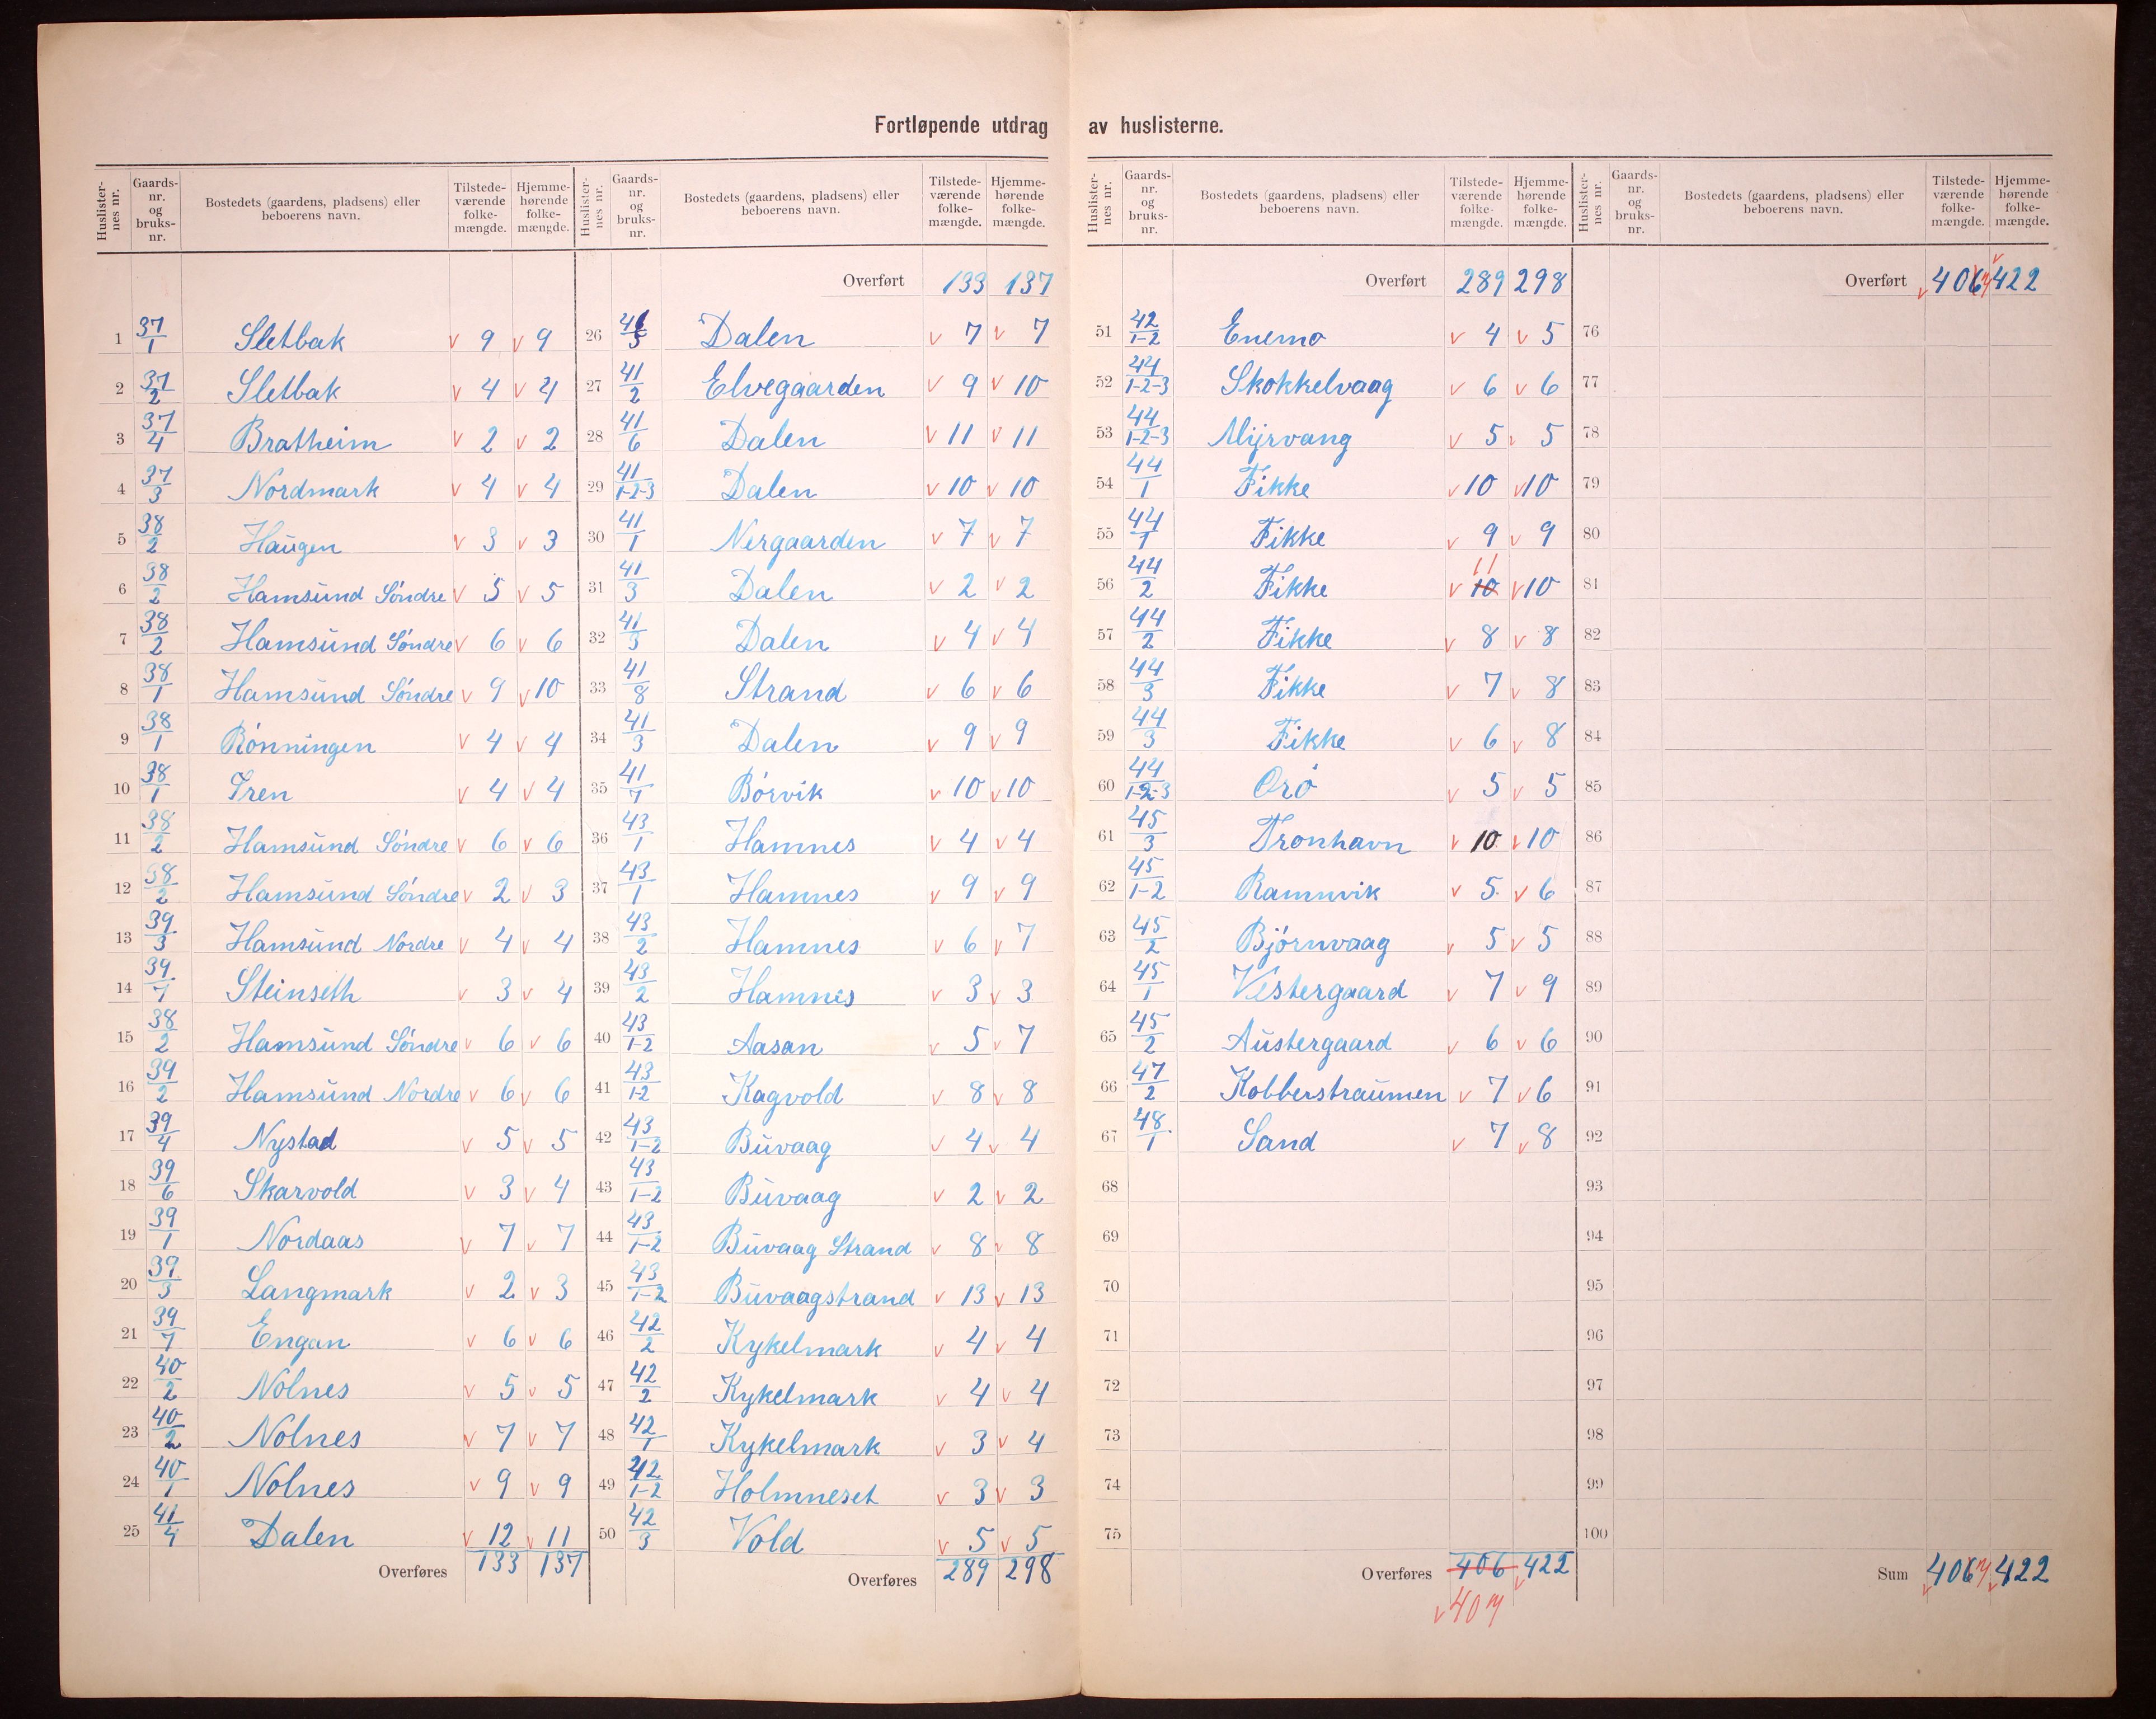 Fortløpende utdrag av huslisterne.
Huslister-nes nr. Gaards-nr. og bruks-nr. Bostedets (gaardens, pladsens) eller beboerens navn. Tilstede-værende folke-mængde. Hjemme-hørende folke-mængde.
1 37/1 Sletbak v 9 v 9
2 37/2 Sletbak v 4 v 4
3 37/4 Bratheim v 2 v 2
4 37/3 Nordmark v 4 v 4
5 38/2 Haugen v 3 v 3
6 38/2 Hamsund Søndre v 5 v 5
7 38/2 Hamsund Søndre v 6 v 6
8 38/1 Hamsund Søndre v 9 v 10
9 38/1 Rønningen v 4 v 4
10 38/1 Iren v 4 v 4
11 38/2 Hamsund Søndre v 6 v 6
12 38/2 Hamsund Søndre v 2 v 3
13 39/3 Hamsund Nordre v 4 v 4
14 39/7 Steinseth v 3 v 4
15 38/2 Hamsund Søndre v 6 v 6
16 39/2 Hamsund Nordre v 6 v 6
17 39/4 Nystad v 5 v 5
18 39/6 Skarvold v 3 v 4
19 39/1 Nordaas v 7 v 7
20 39/3 Langmark v 2 v 3
21 39/7 Engan v 6 v 6
22 40/2 Nolnes v 5 v 5
23 40/2 Nolnes v 7 v 7
24 40/1 Nolnes v 9 v 9
25 41/4 Dalen v 12 v 11
Overføres 133 137
Huslister-nes nr. Gaards-nr. og bruks-nr. Bostedets (gaardens, pladsens) eller beboerens navn. Tilstede-værende folke-mængde. Hjemme-hørende folke-mængde.
Overført 133 137
26 41/5 Dalen v 7 v 7
27 41/2 Elvegaarden v 9 v 10
28 41/6 Dalen v 11 v 11
29 41/1-2-3 Dalen v 10 v 10
30 41/1 Nergaarden v 7 v 7
31 41/3 Dalen v 2 v 2
32 41/3 Dalen v 4 v 4
33 41/8 Strand v 6 v 6
34 41/3 Dalen v 9 v 9
35 41/7 Børvik v 10 v 10
36 43/1 Hamnes v 4 v 4
37 43/1 Hamnes v 9 v 9
38 43/2 Hamnes v 6 v 7
39 43/2 Hamnes v 3 v 3
40 43/1-2 Aasan v 5 v 7
41 43/1-2 Kagvold v 8 v 8
42 43/1-2 Buvaag v 4 v 4
43 43/1-2 Buvaag v 2 v 2
44 43/1-2 Buvaag Strand v 8 v 8
45 43/1-2 Buvaagstrand v 13 v 13
46 42/2 Kykelmark v 4 v 4
47 42/2 Kykelmark v 4 v 4
48 42/1 Kykelmark v 3 v 4
49 42/1-2 Holmneset v 3 v 3
50 42/3 Vold v 5 v 5
Overføres 289 298
Huslister-nes nr. Gaards-nr. og bruks-nr. Bostedets (gaardens, pladsens) eller beboerens navn. Tilstede-værende folke-mængde. Hjemme-hørende folke-mængde.
Overført 289 298
51 42/1-2 Enemo v 4 v 5
52 44/1-2-3 Skokkelvaag v 6 v 6
53 44/1-2-3 Myrvang v 5 v 5
54 44/1 Fikke v 10 v 10
55 44/1 Fikke v 9 v 9
56 44/2 Fikke v 10 11 v 10
57 44/2 Fikke v 8 v 8
58 44/3 Fikke v 7 v 8
59 44/3 Fikke v 6 v 8
60 44/1-2-3 Orø v 5 v 5
61 45/3 Tronhavn v 10 v 10
62 45/1-2 Ramnvik v 5 v 6
63 45/2 Bjørnvaag v 5 v 5
64 45/1 Vestergaard v 7 v 9
65 45/2 Austergaard v 6 v 6
66 47/2 Kobberstraumen v 7 v 6
67 48/1 Sand v 7 v 8
68
69
70
71
72
73
74
75
Overføres 406 v 422
v 407
Huslister-nes nr. Gaards-nr. og bruks-nr. Bostedets (gaardens, pladsens) eller beboerens navn. Tilstede-værende folke-mængde. Hjemme-hørende folke-mængde.
Overført v 406 7 v 422
76
77
78
79
80
81
82
83
84
85
86
87
88
89
90
91
92
93
94
95
96
97
98
99
100
Sum v 406 7 v 422